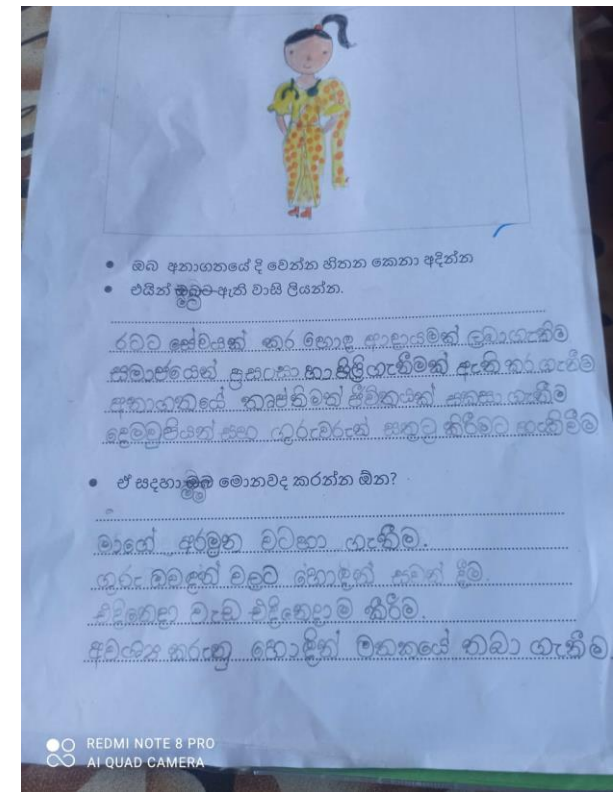 • ඔබ අනාගතයේ දී වෙන්න හිතන කෙනා අදින්න
• එයින් ඔබට ඇති වාසි ලියන්න.
රටට සේවයක් කර හොඳ ආදායමක් ලබාගැනීම
සමාජයෙන් ප්‍රසංසා හා පිලිගැනීමක් ඇති කර ගැනීම
අනාගතයේ තෘප්තිමත් ජීවිතයක් සකසා ගැනීම
දෙමව්පියන් සහ ගුරුවරුන් සතුටු කිරීමට හැකිවීම
• ඒ සදහා ඔබ මොනවද කරන්න ඕන?
මාගේ අරමුන වටහා ගැනීම.
ගුරු අවවාදත් වලට හොඳින් සවන් දීම.
එදිනෙදා වැඩ එදිනෙදාම කිරීම.
අවශ්‍ය කරුනු හොඳින් මතකයේ තබා ගැනීම.
REDMI NOTE 8 PRO
AI QUAD CAMERA